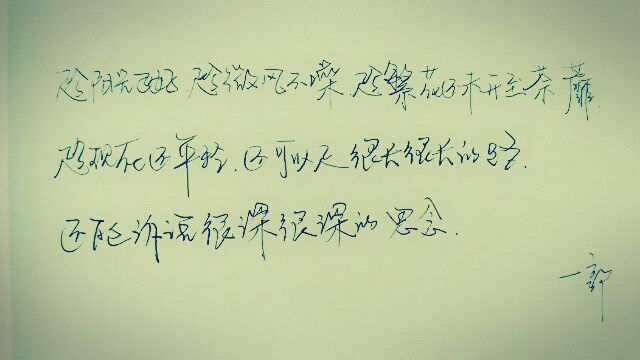 趁阳光正好 趁微风不噪 趁繁花还未开至荼蘼
趁现在还年轻.还可以走很长很长的路.
还能诉说很深很深的思念.